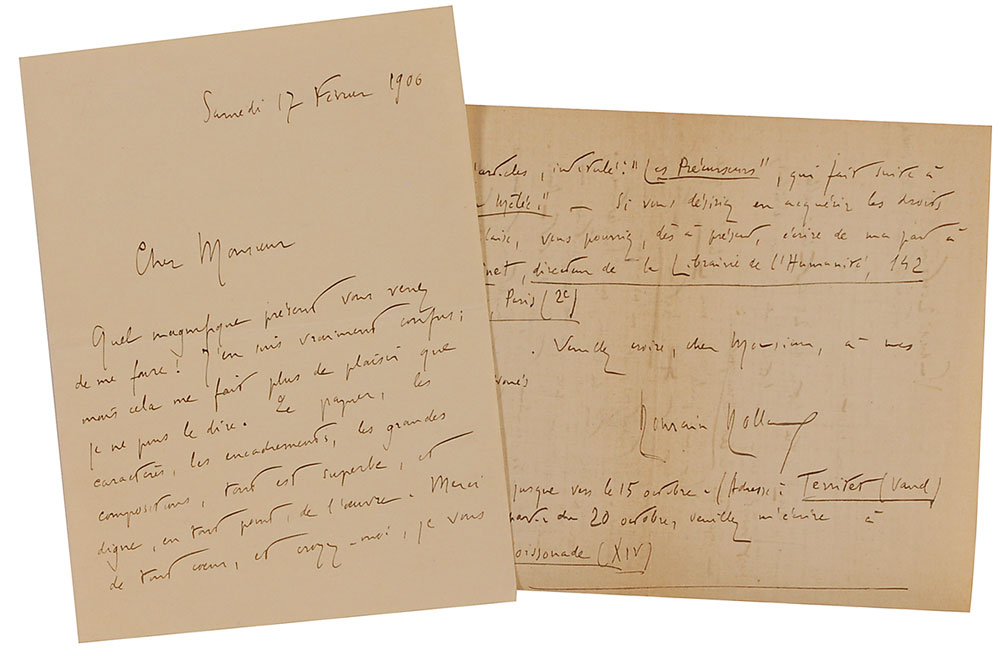 Samedi 17 Février 1906
Cher Monsieur
Quel magnifique présent vous venez
de me faire ! J'en suis vraiment confus ;
mais cela me fait plus de plaisir que
je ne puis le dire. Le papier, les
caractères, les encadrements, les grandes
compositions, tout est superbe, et
digne, en tout point, de l'œuvre. Merci
de tout cœur, et croyez-moi, je vous
articles, intitulé : "Les Précurseurs", qui fait suite à
Mêlée." — Si vous désiriez en acquérir les droits
vous pourriez, dès à présent, écrire de ma part à
directeur de la Librairie de l'Humanité, 142
, Paris (2e)
. Veuillez croire, cher Monsieur, à mes
voués
Romain Rolland
jusque vers le 15 octobre - (Adresse : Territet (Vaud)
partir du 20 octobre, veuillez m'écrire à
oissonade (XIV)